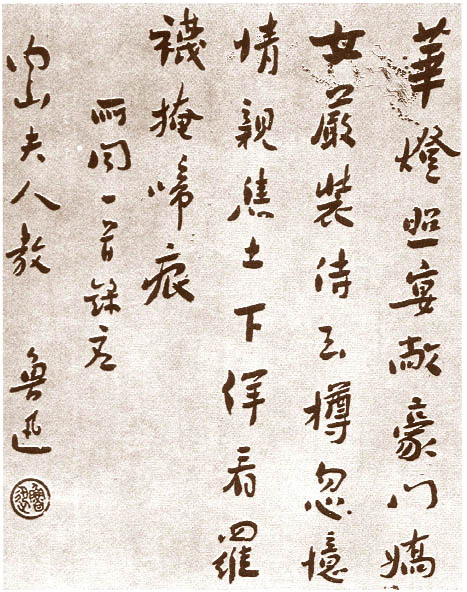 華燈照宴敞豪門嬌
女嚴裝侍玉樽忽憶
情親焦土下佯看羅
襪掩啼痕
所聞一首録
内山夫人教 魯迅
魯迅